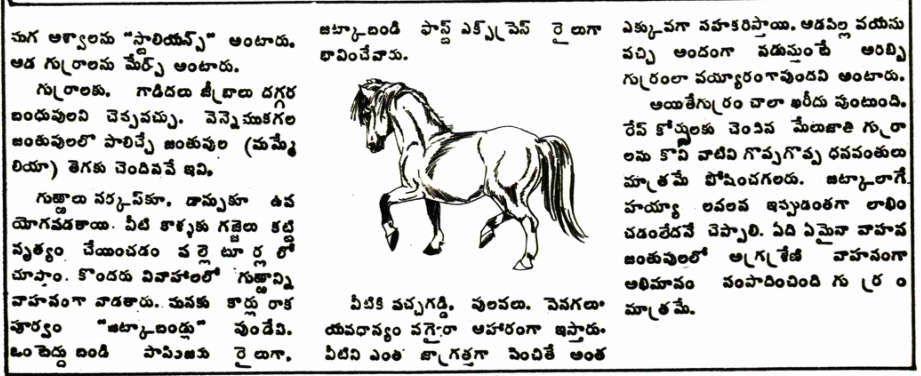 మగ అశ్వాలను "స్టాలియన్స్" అంటారు.
ఆడ గుర్రాలను మేర్స్ అంటారు.
గుర్రాలకు, గాడిదలు జీబ్రాలు దగ్గర
బంధువులని చెప్పవచ్చు. వెన్నెముకగల
జంతువులలో పాలిచ్చే జంతువుల (మమ్మే
లియా) తెగకు చెందినవే ఇవి.
గుఱ్ఱాలు సర్కస్‌కూ, డాన్సుకూ ఉప
యోగపడతాయి. వీటి కాళ్ళకు గజ్జెలు కట్టి
నృత్యం చేయించడం పల్లెటూర్లలో
చూస్తాం. కొందరు వివాహాలలో గుఱ్ఱాన్ని
వాహనంగా వాడతారు. మనకు కార్లు రాక
పూర్వం "జట్కాబండ్లు" వుండేవి.
ఒంటెద్దు బండి పాసింజరు రైలుగా,
జట్కాబండి ఫాస్ట్ ఎక్స్‌ప్రెస్ రైలుగా
భావించేవారు.
వీటికి పచ్చగడ్డి, వులవలు, సెనగలు
యవధాన్యం వగైరా ఆహారంగా ఇస్తారు.
వీటిని ఎంత జాగ్రత్తగా పెంచితే అంత
ఎక్కువగా సహకరిస్తాయి. ఆడపిల్ల వయసు
వచ్చి అందంగా నడుస్తుంటే అరబ్బి
గుర్రంలా వయ్యారంగావుందని అంటారు.
అయితేగుర్రం చాలా ఖరీదు వుంటుంది.
రేస్ కోర్సులకు చెందిన మేలుజాతి గుర్రా
లను కొని వాటిని గొప్పగొప్ప ధనవంతులు
మాత్రమే పోషించగలరు. జట్కాలాగే
హయ్యా లవలవ ఇప్పుడంతగా లాభిం
చడంలేదనే చెప్పాలి. ఏది ఏమైనా వాహన
జంతువులలో అగ్రశ్రేణి వాహనంగా
అభిమానం సంపాదించింది గుర్రం
మాత్రమే.